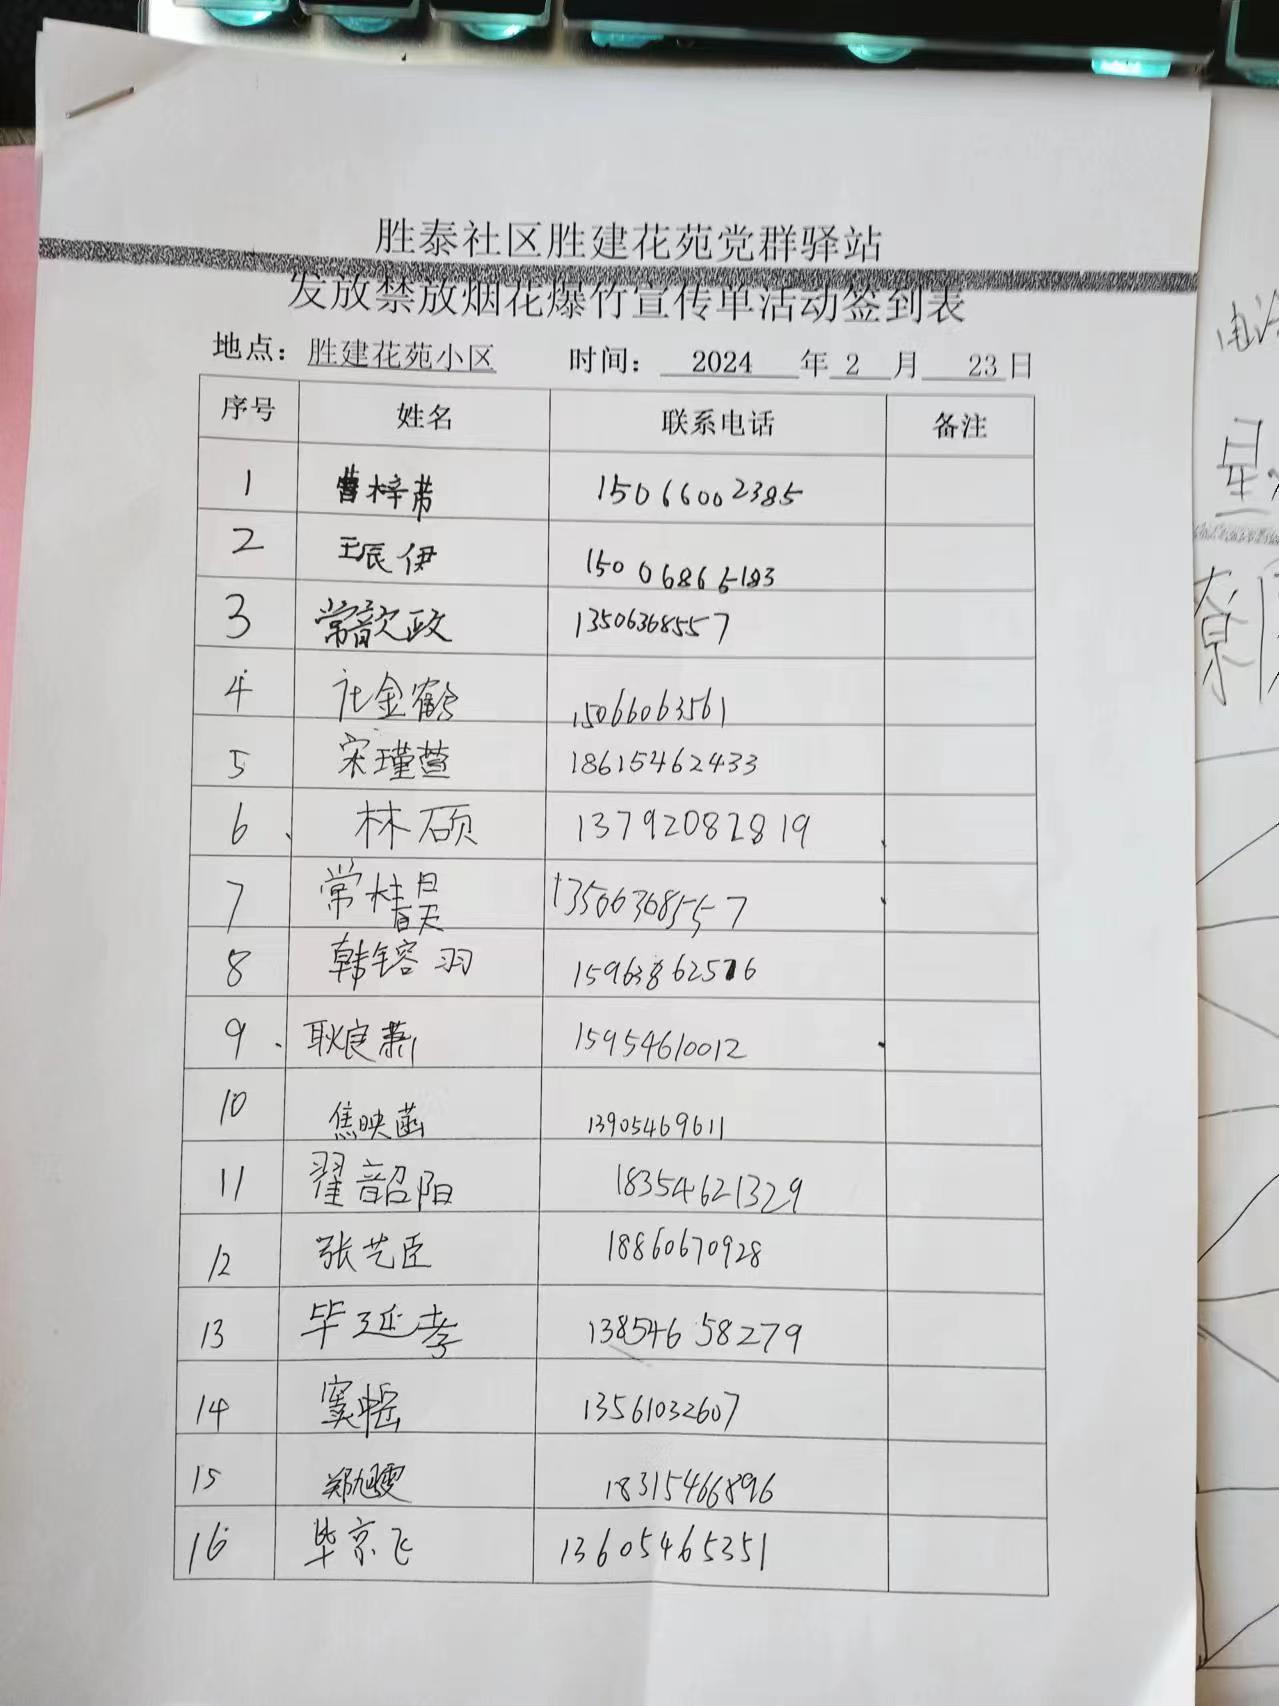 胜泰社区胜建花苑党群驿站
发放禁放烟花爆竹宣传单活动签到表
地点：胜建花苑小区 时间： 2024 年 2 月 23 日
序号 姓名 联系电话 备注
1 曹梓芾 15066002385
2 王辰伊 15006865183
3 常歆政 13506368557
4 社金鹤 15066063561
5 宋瑾萱 18615462433
6 林硕 13792082819
7 常椿昊 13506368557
8 韩镕羽 15963862576
9 耿良萧 15954610012
10 焦映菡 13905469611
11 翟韶阳 18354621329
12 张艺臣 18860670928
13 毕延孝 13854658279
14 窦 13561032607
15 郑旭雯 18315466896
16 毕京飞 13605465351
电话
星